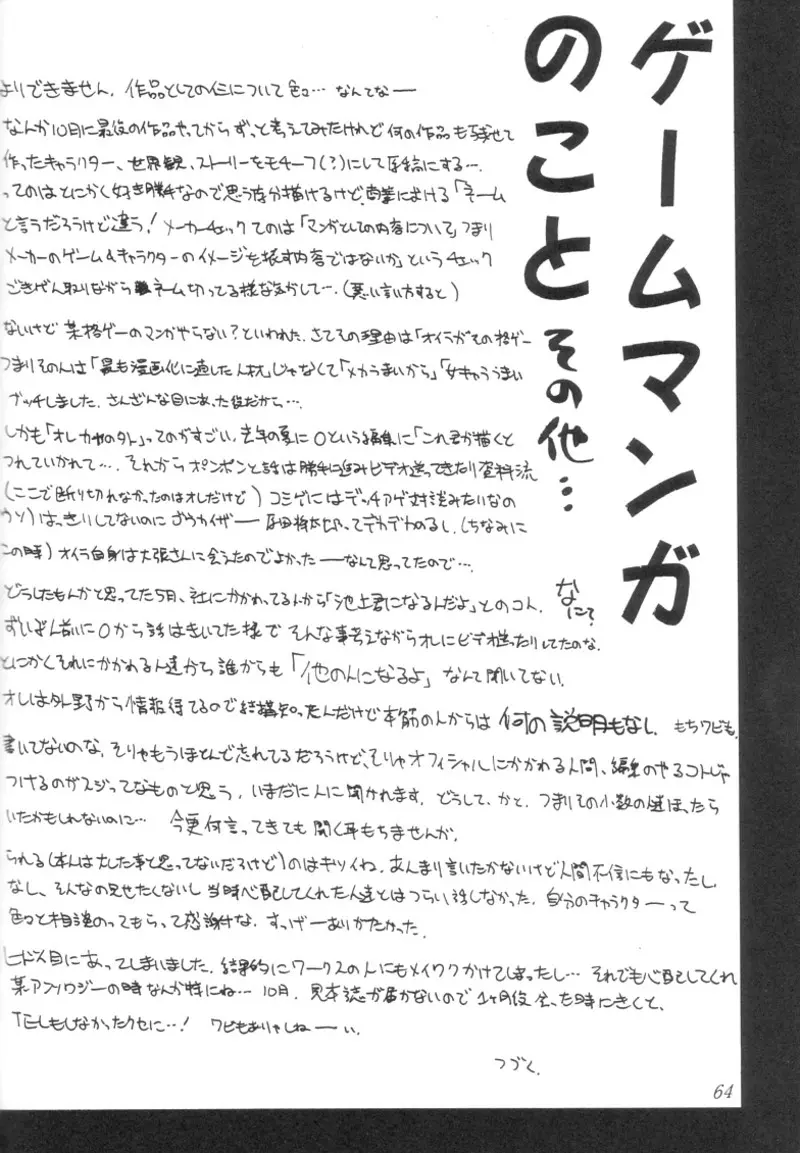 ゲームマンガ
のこと その他…
よりできません。作品としての仁について色々… なんてなー
なんか10月に最後の作品やってからずっと考えてみたけれど何の作品も残せて
作ったキャラクター、世界観、ストーリーをモチーフ(?)にして原稿にする…。
ってのはとにかく好き勝手なので思う存分描けるけど商業における「ネーム
と言うだろうけど違う! メーカーチェックてのは「マンガとしての内容について」つまり
メーカーのゲーム&キャラクターのイメージを壊す内容ではないか」というチェック
ごきげん取りながらネーム切ってる様な気がして…。(悪い言い方すると)
ないけど某格ゲーのマンガやらない?といわれた。さてその理由は「オイラがその格ゲー
つまりその人は「最も漫画化に適した人材」じゃなくて「メカうまいから」「女キャラうまい
ブッチしました。さんざんな目にあった役だから…。
しかも「オレ カヤのソト」ってのがすごい。去年の夏にOという編集に「これ君が描くと
つれていかれて…。それからポンポンと話は勝手に進みビデオ送ってきたり資料流
(ここで断り切れなかったのはオレだけど) コミゲにはデッチアゲ対談みたいなの
ウソ)はっきりしてないのにゴウカイザー
ってデカデカのるし。(ちなみに
この時) オイラ自身は大張さんに会えたのでよかったーなんて思ってたので…。
どうしたもんかと思ってた5月、社にかかわってる人から「池上君になるんだよ」とのコト。なにて?
ずいぶん前にOから話はきいてた様で そんな事考えながらオレにビデオ送ったりしてたのな。
とにかくそれにかかわる人達から誰からも「他の人になるよ」なんて聞いてない。
オレは外野から情報得てるので結構知ったんだけど本筋の人からは何の説明もなし。もちワビも。
書いてないのな。そりゃもうほとんど忘れてるだろうけど、そりゃオフィシャルにかかわる人間、編集のやるコトじゃ
つけるのがスジってなものと思う。いまだに人に聞かれます。どうして、かと。つまりその小数の僕ほったら
いたかもしれないのに… 今更何言ってきても聞く耳もちませんが。
られる(本人は大した事と思ってないだろけど)のはキツイね。あんまり言いたかないけど人間不信にもなったし
なし、そんなの見せたくないし 当時心配してくれた人達とはつらい話しなかった。自分のキャラクターって
色々と相談のってもらって感謝すな。すっげーありがたかった。
ヒドイ目にあってしまいました。結果的にワークスの人にもメイワクかけてしまったし… それでも心配してくれ
某アンソロジーの時なんか特にね… 10月。見本誌が届かないので1ヶ月後 会った時にきくと、
TELもしなかったクセに…! ワビもありゃしねーい。
つづく。
64